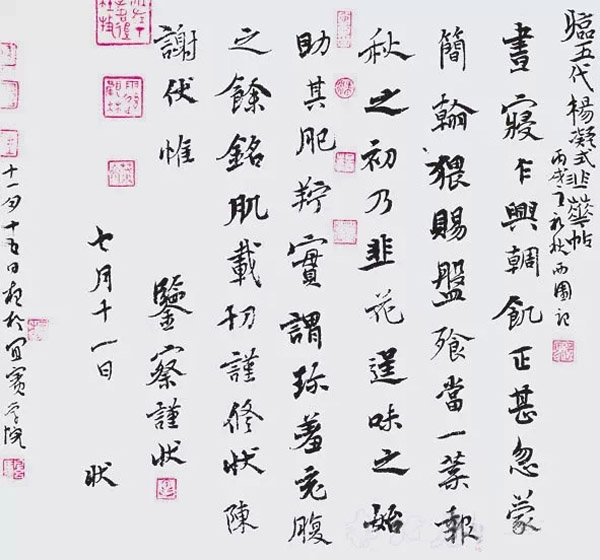 臨五代楊凝式韭華帖
晝寢乍興輖飢正甚忽蒙
簡翰猥賜盤飧當一葉報
秋之初乃韭花逞味之始
助其肥羜實謂珍羞充腹
之餘銘肌載切謹修狀陳
謝伏惟
鑒察謹狀
七月十一日 狀
十一月十五日於宜賓學院